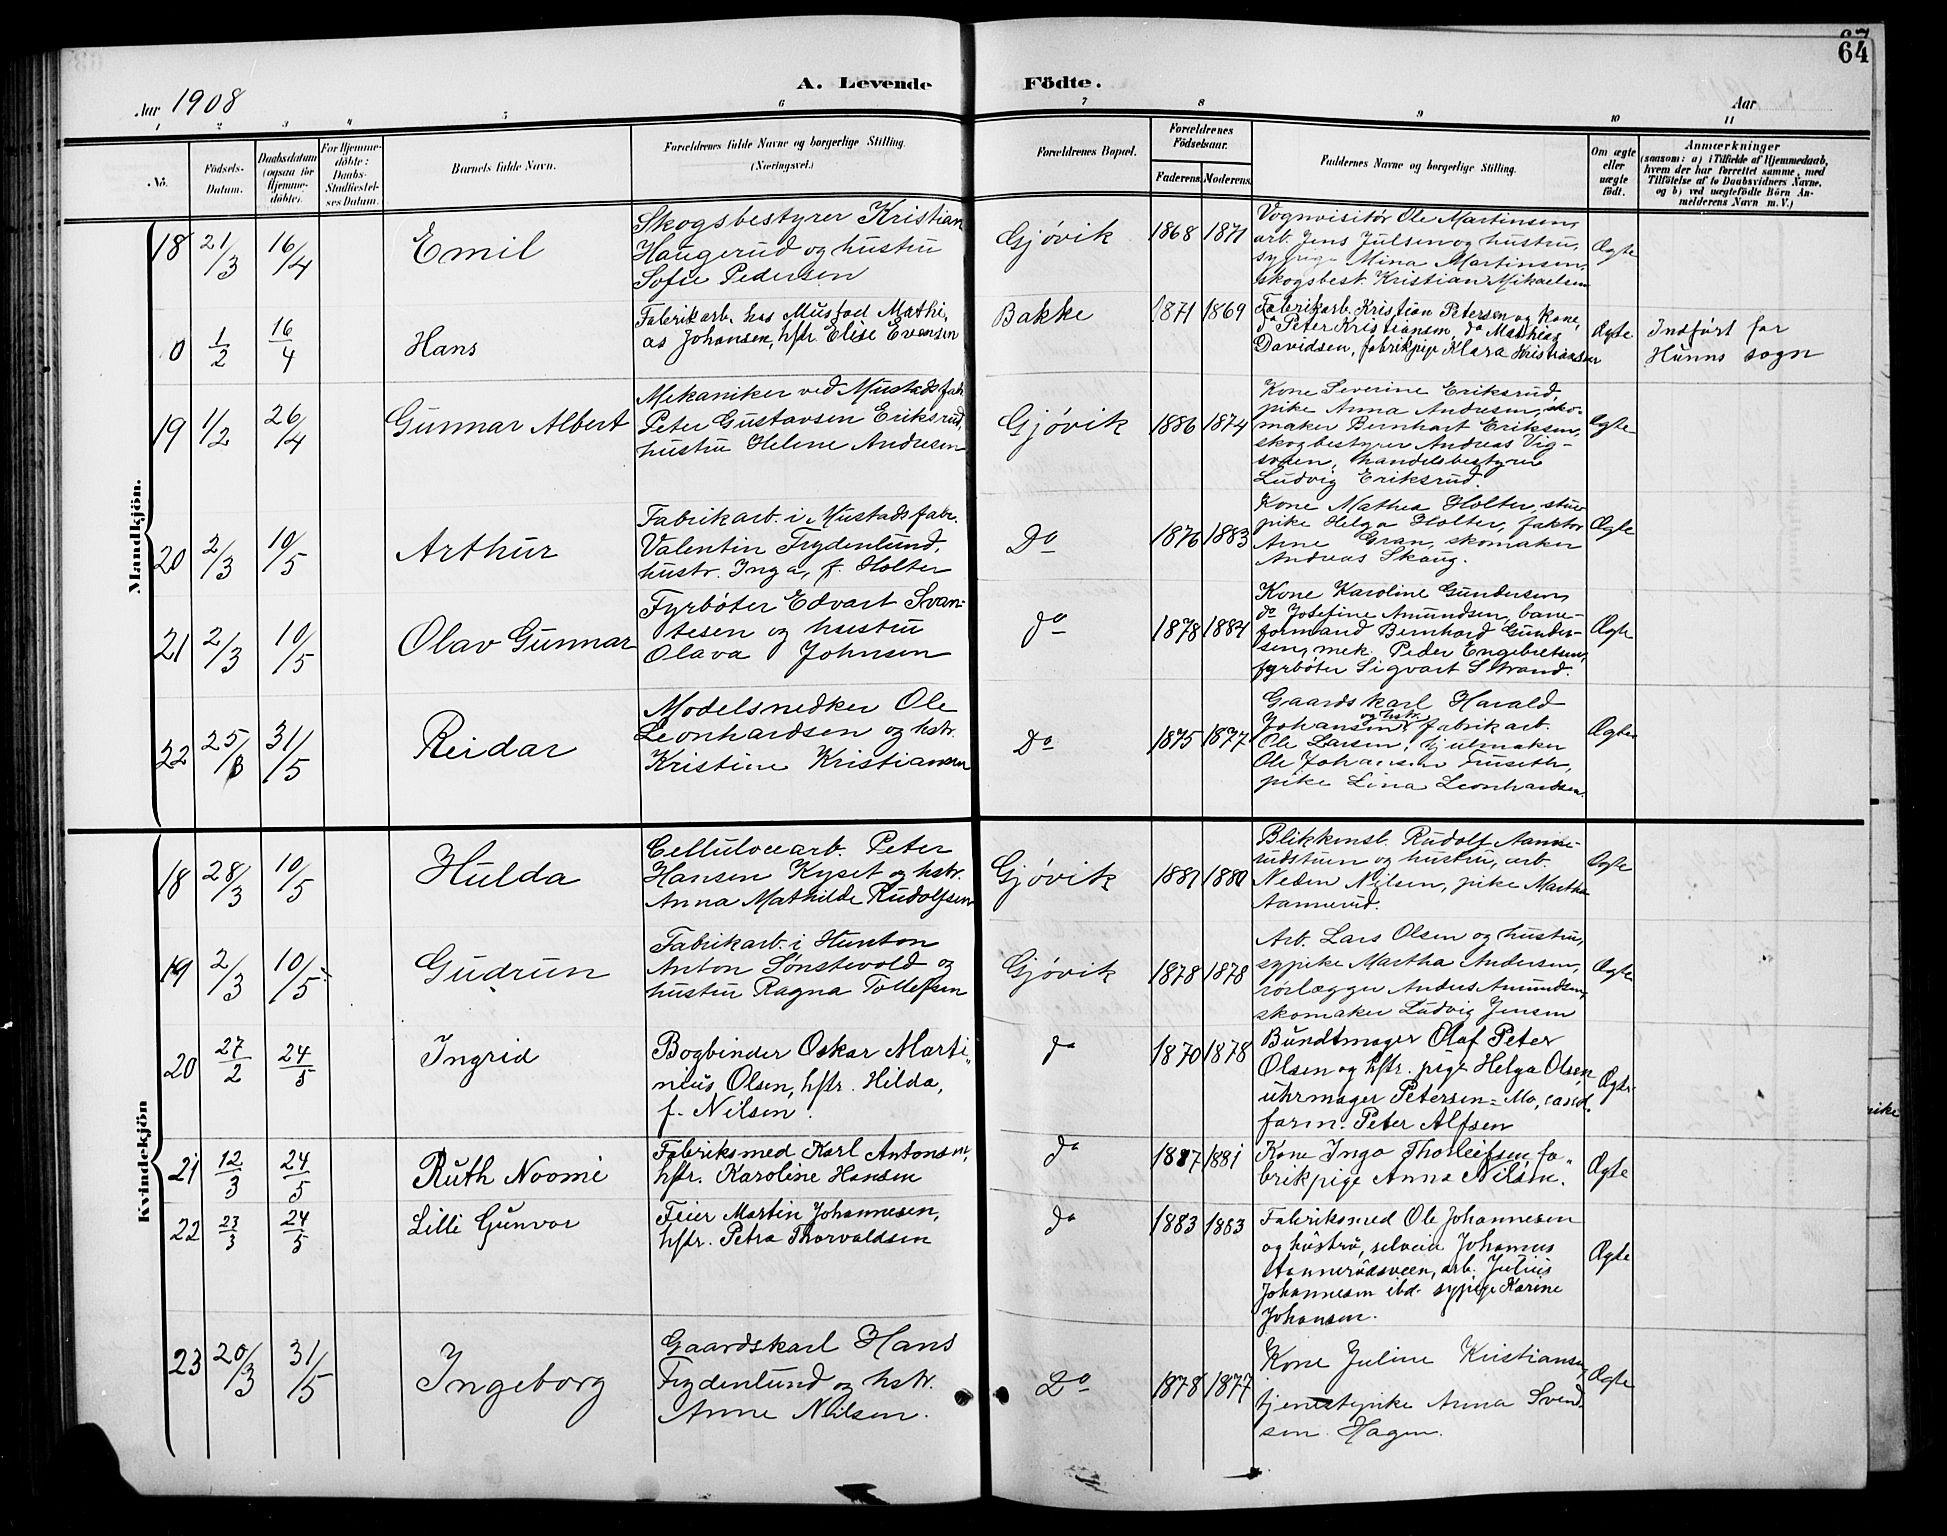 64
A. Levende Födte.
Aar 1908
Aar
1 2 3 4 5 6 7 8 9 10 11
No.
Födsels-
Datum.
Daabsdatum
(ogsaa for
Hjemme-
döbte).
For Hjemme-
döbte:
Daabs-
Stadfæstel-
ses Datum.
Barnets fulde Navn.
Forældrenes fulde Navne og borgerlige Stilling.
(Næringsvei.)
Forældrenes Bopæl.
Forældrenes
Födselsaar.
Faderens. Moderens.
Faddernes Navne og borgerlige Stilling.
Om ægte
eller
uægte
født.
Anmærkninger
(saasom: a) i Tilfælde af Hjemmedaab,
hvem der har forrettet samme, med
Tilföielse af to Daabsvidners Navne,
og b) ved uægtefödte Börn An-
melderens Navn m. V.)
Mandkjön.
18 21/3 16/4 Emil
Skogsbestyrer Kristian
Haugerud og hustru
Sofie Pedersen
Gjøvik 1868 1871
Vognvisitør Ole Martinsen,
arb. Jens Julsen og hustru,
sypige Mina Martinsen,
skogsbest. Kristian Mikaelsen
Ægte
0 1/2 16/4 Hans
Fabrikarb. hos Mustad Mathi-
as Johansen, hstr. Elise Evensen
Bakke 1871 1869
Fabrikarb. Kristian Petersen og Kone,
do Peter Kristiansen, do Mathias
Davidsen, fabrikpige Klara Kristiansen
Ægte
Indført for
Hunns sogn
19 1/2 26/4 Gunnar Albert
Mekaniker ved Mustads fabr.
Peter Gustavsen Eriksrud,
hustru Helene Andresen
Gjøvik 1886 1874
Kone Severine Eriksrud,
pike Anna Andresen, sko-
maker Bernhart Eriksen,
skogbestyrer Andreas Vig-
, handelsbestyrer
Ludvig Eriksrud.
Ægte
20 2/3 10/5 Arthur
Fabrikarb. i Mustads fabr.
Valentin Frydenlund,
hustr. Inga, f. Holter
Do 1876 1883
Kone Mathea Holter, stue-
pike Helga Holter, faktor
Arne Gran, skomaker
Andreas Skaug.
Ægte
21 2/3 10/5 Olav Gunnar
Fyrbøter Edvart Svan-
tesen og hustru
Olava Johnsen
do 1878 1884
Kone Karoline Gundersen,
do Josefine Amundsen, bane-
formand Bernhard Gunder-
sen, mek. Peder Engebretsen,
fyrbøter Sigvart Strand.
Ægte
22 25/ 31/5 Reidar
Modelsnedker Ole
Leonhardsen og hstr.
Kristine Kristiansen
Do 1875 1877
Gaardskarl Harald
Johansen og hstr., fabrikarb.
Ole Larsen, hjulmaker
Ole Johansen Fuseth,
pike Lina Leonhardsen.
Ægte
Kvindekjön
18 28/3 10/5 Hulda
Cellulosearb. Peter
Hansen Kyset og hstr.
Anna Mathilde Rudolfsen
Gjøvik 1881 1880
Blikkensl. Rudolf Aanne-
rudstuen og hustru, arb.
Neden Nilsen, pike Martha
Aannerud.
Ægte
19 2/3 10/5 Gudrun
Fabrikarb. i Hunton
Anton Sønstevold og
hustru Ragna Tollefsen
Gjøvik 1878 1878
Arb. Lars Olsen og hustru,
sypike Martha Andersen,
rørlægger Anders Amundsen,
skomaker Ludvig Jensen
Ægte
20 27/2 24/5 Ingrid
Bogbinder Oskar Marti-
nius Olsen, hstr. Hilda,
f. Nilsen.
do 1870 1878
Bundtmager Olaf Peter
Olsen og hstr. pige Helga Olsen,
uhrmager Petersen-Mo, cand.
farm. Peter Alfsen
Ægte
21 12/3 24/5 Ruth Noomi
Fabriksmed Karl Antonsen,
hstr. Karoline Hansen
do 1887 1881
Kone Inga Thorleifsen, fa-
brikpige Anna Nilsen.
Ægte
22 23/3 24/5 Lilli Gunvor
Feier Martin Johannesen,
hstr. Petra Thorvaldsen
do 1883 1883
Fabriksmed Ole Johannesen
og hustru, selveier Johannes
Aannerudsveen, arb. Julius
Johannesen ibd. sypige Karine
Johansen.
Ægte
23 20/3 31/5 Ingeborg
Gaardskarl Hans
Frydenlund og hstr.
Anne Nilsen.
Do 1878 1877
Kone Juline Kristiansen,
tjenestepike Anna Svend-
sen Hagen.
Ægte